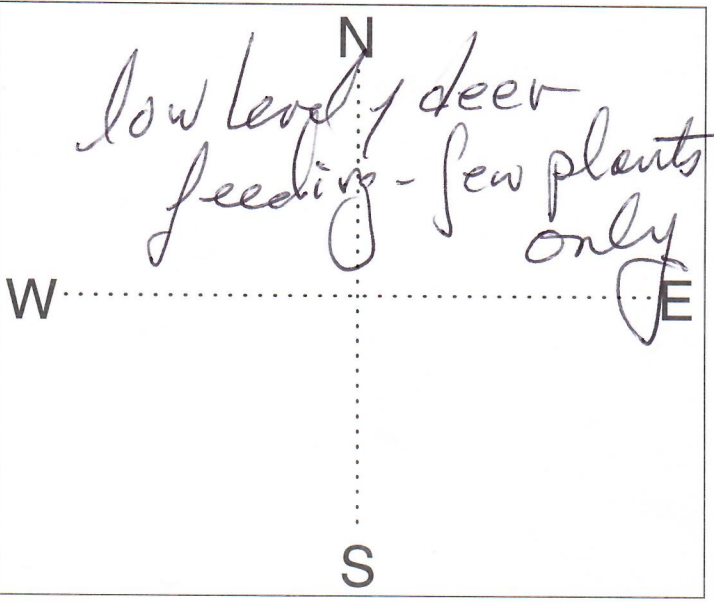 N
low level of deer
feeding - few plants
only
W E
S